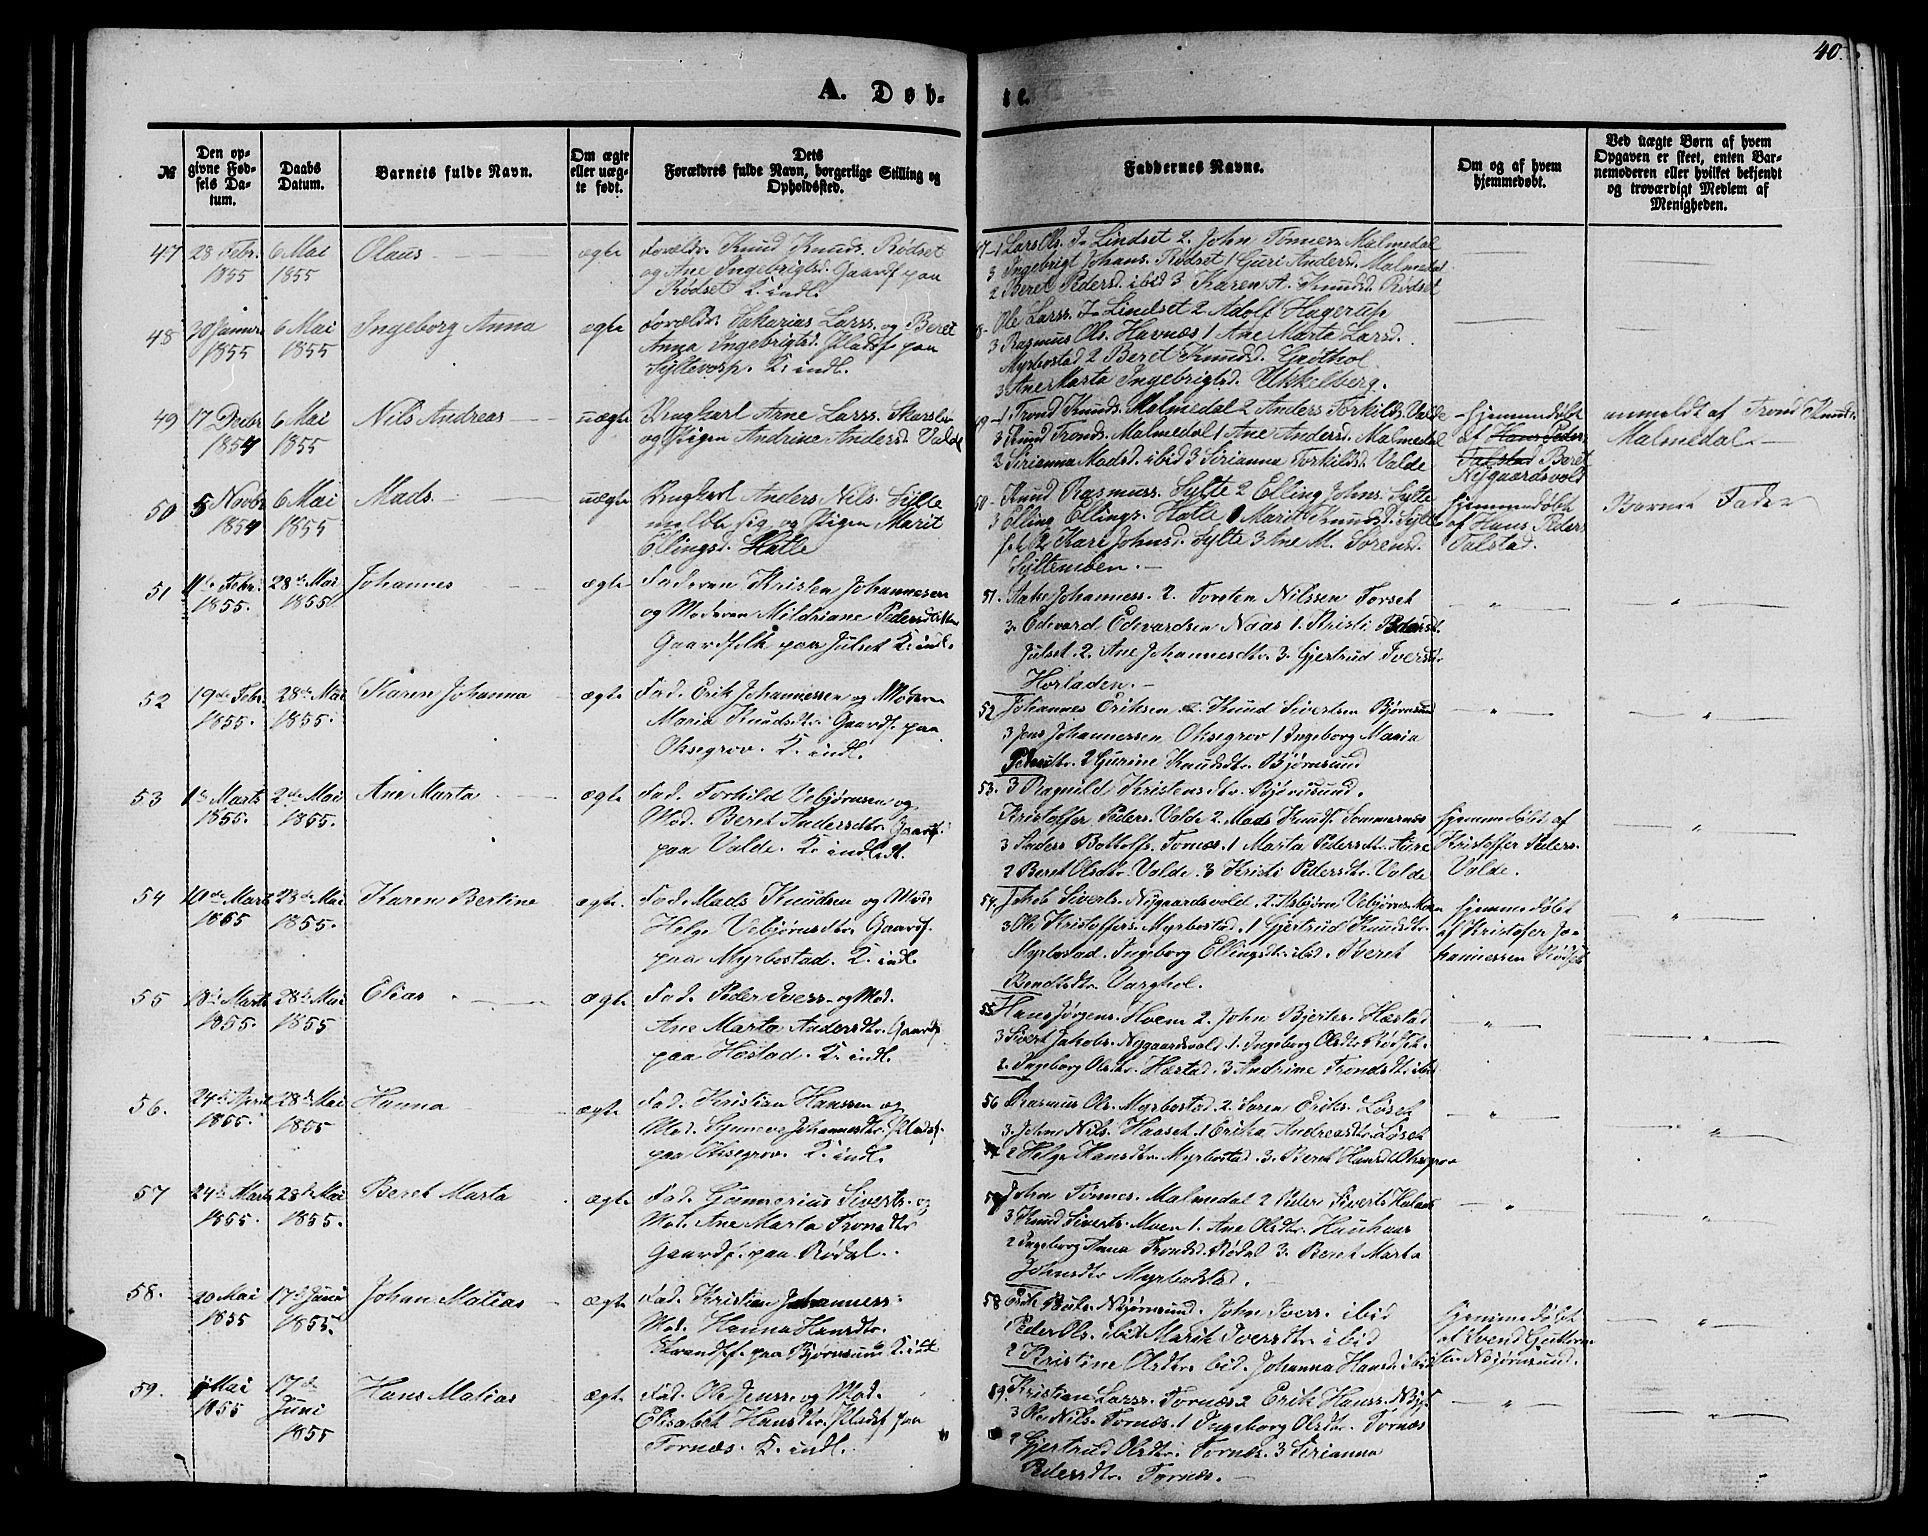 40.
A. Døb-
te.
№
Den op-
givne Fød-
sels Da-
tum.
Daabs
Datum.
Barnets fulde Navn.
Om ægte
eller uæg-
te født.
Dets
Forældres fulde Navn, borgerlige Stilling og
Opholdssted.
Faddernes Navne.
Om og af hvem
hjemmedøbt.
Ved uægte Børn af hvem
Opgaven er skeet, enten Bar-
nemoderen eller hvilket bekjendt
og troværdigt Medlem af
Menigheden.
47
28 Febr.
1855
6 Mai
1855
Olaus
ægte
Forældr. Knud Knuds. Rødset
og Ane Ingebrigtsd. Gaardf paa
Rødset K. indl.
47-1 Lars Ols. Lindset 2. John Tønnes. Malmedal
3 Ingebrigt Johans. Rødset 1 Guri Andersd. Malmedal
2 Beret Pedersd. ibid 3 Karen A. Knudsd. Rødset
48
30 Januar
1855
6 Mai
1855
Ingeborg Anna
ægte
Forældr. Sakarias Larss. og Beret
Anna Ingebrigtsd. Pladsf paa
Syltevorp. K. indl.
Ole Larss. Lindset 2 Adolf Hagerup
3 Rasmus Ols. Havnæs 1 Ane Marta Larsd.
Myrbostad 2 Beret Knudsd. Grøthol
3 Ane Marta Ingebrigtsd. Ukkelberg.
49
17 Decbr
1854
6 Mai
1855
Nils Andreas
uægte
Ungkarl Arne Larss. Skarslo
og Pigen Andrine Andersd. Valde
1 Trond Knuds. Malmedal 2 Anders Torkilds. Valde
3 Knud Tronds. Malmedal 1 Ane Andersd. Malmedal
2 Sirianna Madsd. ibid 3 Sirianna Torkildsd. Valde
hjemmedøbt
af Hans Peders
Talstad Beret
Nygaardsvold
anmeldt af Trond Knuds.
Malmedal
50
5 Novbr
1854
6 Mai
1855
Mads
uægte
Ungkarl Anders Nils. Sylte
meldte sig og Pigen Marit
Ellingsd. Hatle
50- Knud Rasmuss. Sylte 2 Elling Johns. Sylte
3 Elling Ellings. Hatle 1 Marit Knudsd. Sylte
2 Kari Johnsd. Sylte 3 Ane M. Sørensd.
Syltemben.
hjemmedøbt
af Hans Peders
Talstad.
Barnets Fader
51
11te Febr.
1855.
28de Mai
1855
Johannes
ægte
Faderen Kristen Johannesen
og Moderen Mildriane Pedersdatter
Gaardfolk paa Julset K. indl.
51. Aake Johanness. 2. Torsten Nilssen Torset
3. Edevard Edevardsen Naas 1. Kristi Pedersd.
Julset. 2. Ane Johannesdtr. 3. Gjertrud Iversdtr.
Horladen.
52
19de Febr.
1855.
28de Mai
1855.
Karen Johanna
ægte
Fad. Erik Johannessen og Moderen
Maria Knudsdtr. Gaardf. paa
Oksegrov. K. indl.
52 Johannes Eriksen 2. Knud Sivertsen Bjørnsund
3 Jens Johannessen Oksegrov 1 Ingeborg Maria
2 Gurine Knudsdtr. Bjørnsund
3 Ragnild Kristensdtr. Bjørnsund.
53
1te Marts
1855.
2de Mai
1855.
Ane Marta
ægte
Fad. Torkild Vebjørnsen og
Mod. Beret Andersdtr. Gaardf.
paa Valde. K. indledt.
53.
Kristoffer Peders. Valde 2. Mads Knuds. Sommernæs
3 Anders Bottolfs. Tornæs. 1 Marta Pedersdtr. Aure
2 Beret Olsdtr. Valde. 3 Kristi Pedersdtr. Valde
hjemmedøbt af
Kristoffer Peders.
Valde.
54
10de Marts
1855
28de Mai
1855.
Karen Bertine
ægte.
Fad. Mads Knudsen og Mod.
Helge Vebjørnsdtr. Gaardf.
paa Myrbostad. K. indl.
54. Jakob Siverts. Nygaardsvold. 2. Asbjørn Vebjørns. Moen
3 Ole Kristoffers. Myrbostad. 1 Gjertrud Knudsdtr.
Myrbostad. Ingeborg Ellingsdtr. ibid. Beret
Bendtsdtr. Varghol.
hjemmedøbt
af Kristofer Jo-
hannessen Rødset
55
18de Marts
1855.
28de Mai
1855
Elias
ægte
Fad. Peder Ivers. og Mod.
Ane Marta Andersdtr. Gaardf
paa Hæstad. K. indl.
55. Hans Jørgens. Hoem 2. John Bjerks. Hæstad
3 Sivert Jakobs. Nygaardsvold. 1. Ingeborg Olsdtr. Rødset.
2. Ingeborg Olsdtr. Hæstad. 3 Andrine Trondsdtr. ibid
56.
24de April
1855.
28de Mai
1855
Hanna
ægte
Fad. Kristian Hanssen og
Mod. Synneva Johannesdtr. Pladsf.
paa Oksegrov. K. indl.
56 Rasmus Ols. Myrbostad. 2. Søren Eriks. Løset
3. John Nils. Haaset. 1 Erika Andreasdtr. Løset
2 Helge Hansdtr. Myrbostad. 3. Beret Hansd. Oksegrov
57
24de Marts
1855.
28de Mai
1855.
Beret Marta
ægte
Fad. Gunnerius Siverts. og
Mod. Ane Marta Tronsdtr.
Gaardf. paa Rødal.
57 John Tønnes. Malmedal 2 Peder Siverts
3 Knud Siverts. Moen 1. Ane Olsdtr. Hauhaar
2 Ingeborg Anna Trondsd. Rødal 3. Beret Marta
Johnsdtr. Myrbostad.
58.
20 Mai
1855
17de Juni
1855.
Johan Matias
ægte
Fad. Kristian Johanness.
Mod. Hanna Hansdtr.
Strandsf. paa Bjørnsund K. indl
58 Erik N.Bjørnsund. John Ivers. ibid
Peder Ols. ibid Marit Iversdtr. ibid
2 Kristine Olsdtr. ibid. Johanna Hansd. ibid
hjemmedøbt
af Svend Guttorm
sen N.bjørnsund.
59.
1 Mai
1855
17de
Juni
1855
Hans Matias
ægte
Fad. Ole Jenss. og Mod.
Elisabet Hansdtr. Pladsf paa
Tornæs. K. indl.
59. Kristian Larss. Tornæs 2 Erik Hanss. N.Bjs.
3 Ole Nils. Tornæs. 1 Ingeborg Olsdtr. Tornæs
2 Gjertrud Olsdtr. Tornæs. 3 Sirianna
Pedersdtr. Tornæs.